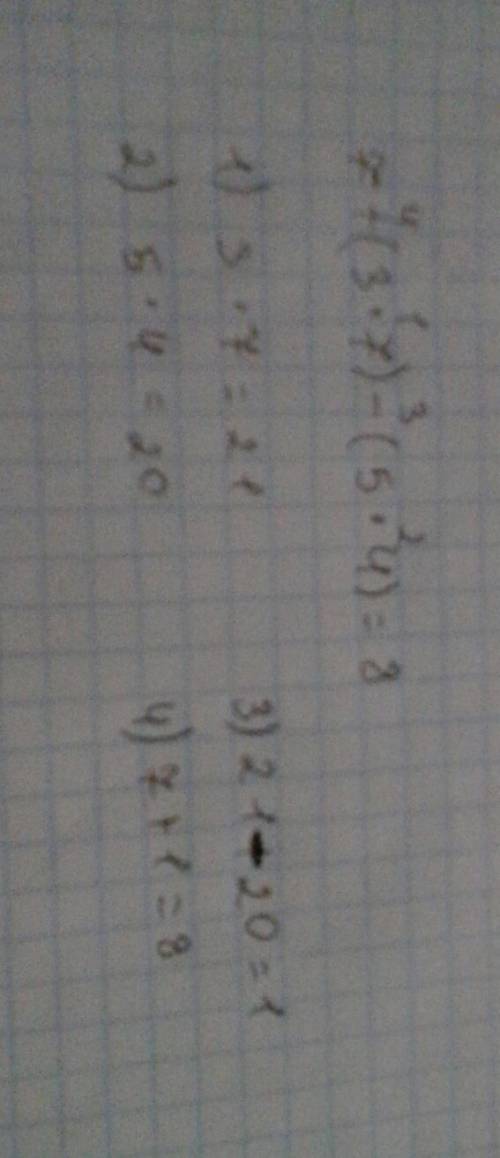 7 +⁴ (3 ·¹ 7) -³ (5 ·² 4) = 8
1) 3 · 7 = 21
2) 5 · 4 = 20
3) 21 - 20 = 1
4) 7 + 1 = 8